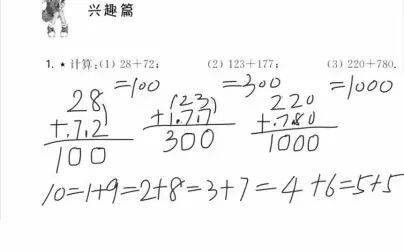 兴趣篇
1. ★ 计算:(1) 28+72; (2) 123+177; (3) 220+780.
=100 =300 =1000
28 123 220
+72 +177 +780
100 300 1000
10=1+9=2+8=3+7=4+6=5+5